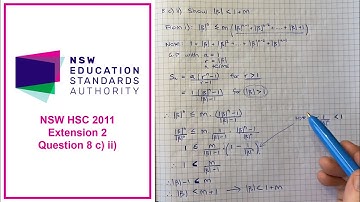 NSW
EDUCATION
STANDARDS
AUTHORITY
NSW HSC 2011
Extension 2
Question 8 c) ii)
8 c) ii) Show |β| < 1+m
From i): |β|ⁿ ≤ m(|β|ⁿ⁻¹ + |β|ⁿ⁻² + ... + |β| + 1)
Now: 1 + |β| + |β|² + ... + |β|ⁿ⁻² + |β|ⁿ⁻¹
GP with a = 1
r = |β|
Sₙ = a(rⁿ-1)/(r-1) for r > 1
= 1(|β|ⁿ-1)/(|β|-1) for |β|>1
∴ |β|ⁿ ≤ m.(|β|ⁿ-1)/(|β|-1)
|β|ⁿ/|β|ⁿ ≤ m/(|β|-1) . (|β|ⁿ-1)/|β|ⁿ
1 ≤ m/(|β|-1) . (1 - 1/|β|ⁿ)
< 1
∴ 1 ≤ m/(|β|-1)
∴ |β|-1 ≤ m
∴ |β| < m+1 → |β| < 1+m